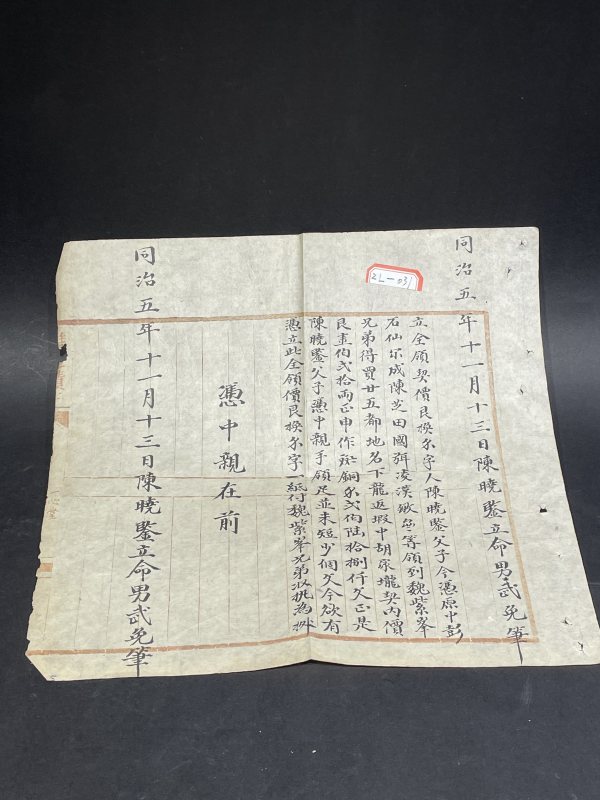 同治五年十一月十三日陳曉鑒立命男武免筆
立全領契價艮換尔字人陳曉鑒父子今憑原中彭
石仙尔成陳芝田國弼凌漢 等領到魏紫峯
兄弟得買廿五都地名下龍返塅中胡家壠契内價
艮壹佰弍拾両正申作 銅尔弍佰陸拾捌仟文正是
陳曉鑒父子憑中親手領足並未短少個文今欲有
憑立此全領價艮換尔字一紙付魏紫峯兄弟收執為㨿
憑中親在前
同治五年十一月十三日陳曉鑒立命男武免筆
2L-031